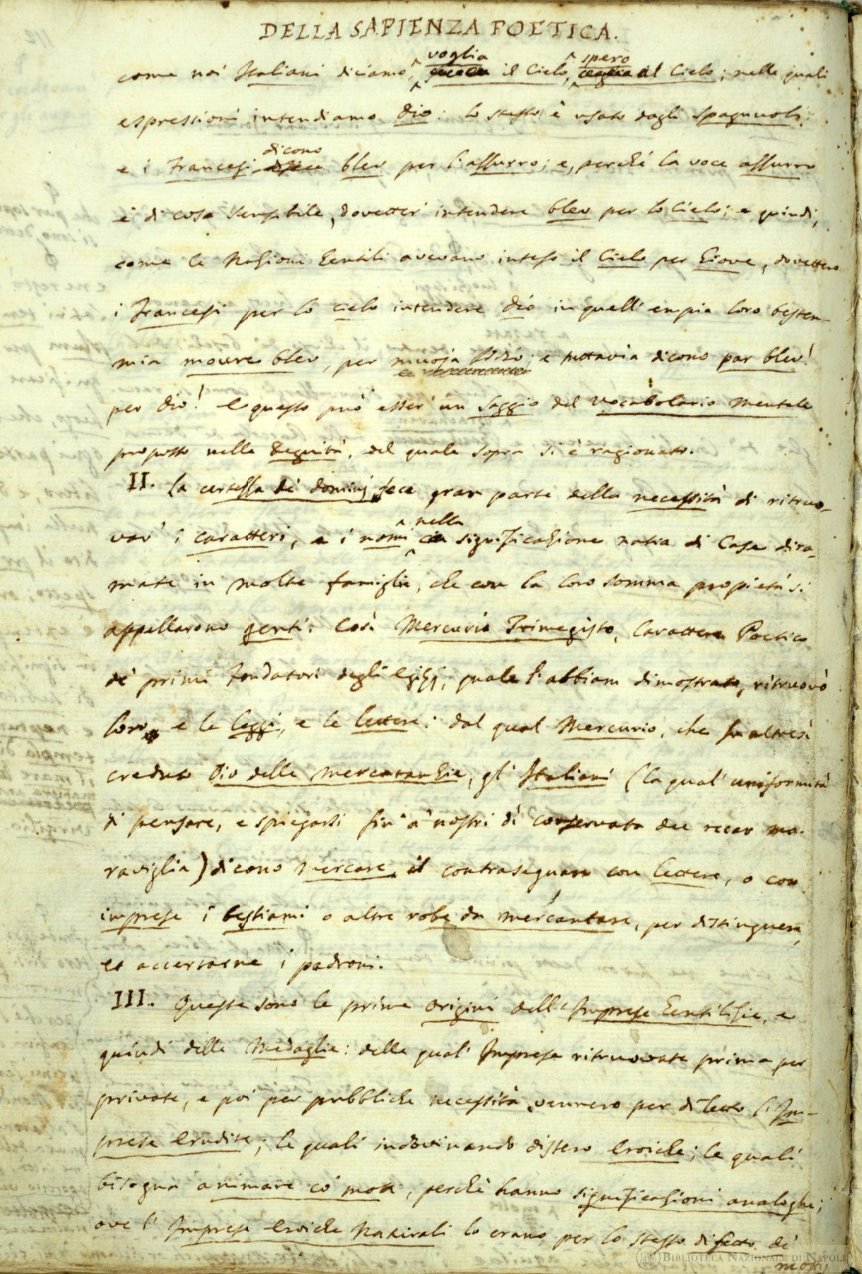 DELLA SAPIENZA POETICA.
come noi Italiani diciamo, voglia il Cielo, spero al Cielo; nelle quali
espressioni intendiamo Dio: lo stesso è usato dagli Spagnuoli:
e i Francesi dicono bleu per l'azzurro; e, perchè la voce azzurro
è di cosa sensibile, dovetter' intendere bleu per lo Cielo; e quindi,
come le Nazioni Gentili avevano inteso il Cielo per Giove, dovettero
i Francesi per lo cielo intendere Dio in quell' empia loro bestem-
mia moure bleu, per muoja Iddio; e tuttavia dicono par bleu!
per Dio! E questo può esser' un Saggio del Vocabolario Mentale
proposto nelle Degnità, del quale sopra si è ragionato.
II. La certezza de' dominj fece gran parte della necessità di ritruo-
var' i caratteri, e i nomi nella significazione natia di Case dira-
mate in molte famiglie, che con la loro somma propietà si
appellarono genti: Così Mercurio Trimegisto, Carattere Poetico
de' primi Fondatori degli Egizj, quale l'abbiam dimostrato, ritruovò
loro e le leggi, e le lettere: dal qual Mercurio, che fu altresì
creduto Dio delle mercatanzie, gl' Italiani (la qual' uniformità
di pensare, e spiegarsi fin' a' nostri dì conservata dee recar ma-
raviglia) dicono mercare il contrasegnare con lettere, o con
imprese i bestiami o altre robe da mercantare, per distinguere,
ed accertarne i padroni.
III. Queste sono le prime origini dell' Imprese Gentilizie, e
quindi delle Medaglie: delle qual' Imprese ritruovate prima per
private, e poi per pubbliche necessità vennero per diletto l' Im-
prese Erudite; le quali indovinando dissero Eroiche; le quali
bisogna animare co' motti, perchè hanno significazioni analoghe;
ove l' Imprese Eroiche Naturali lo erano per lo stesso difetto de'
motti,
BIBLIOTECA NAZIONALE DI NAPOLI